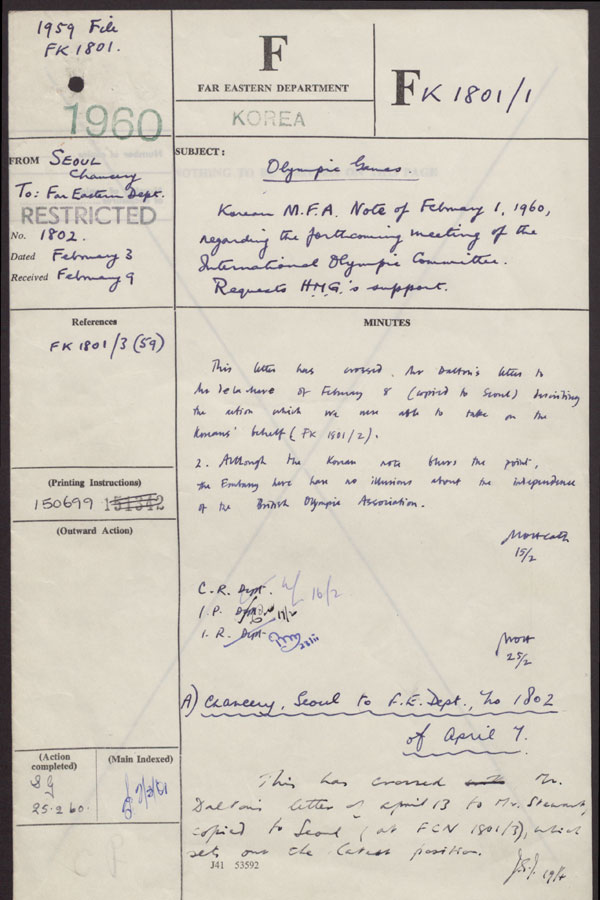 1959 File
FK 1801.
1960
F
FAR EASTERN DEPARTMENT
KOREA
FK 1801/1
FROM SEOUL
Chancery
To: Far Eastern Dept.
RESTRICTED
No. 1802.
Dated February 3
Received February 9
SUBJECT:
Olympic Games
Korean M.F.A. Note of February 1, 1960,
regarding the forthcoming meeting of the
International Olympic Committee.
Requests H.M.G.'s support.
References
FK 1801/3 (59)
(Printing Instructions)
150699 151342
(Outward Action)
(Action completed)
SG
25.2.60.
(Main Indexed)
MINUTES
This letter has crossed Mr Dalton's letter to
Mr de la Mare of February 8 (copied to Seoul) describing
the action which we were able to take on the
Koreans' behalf (FK 1801/2).
2. Although the Korean note blurs the point,
the Embassy here have no illusions about the independence
of the British Olympic Association.
15/2
C.R. Dept. 16/2
I.P. Dept.
I.R. Dept.
25/2
A) Chancery, Seoul to F.E. Dept., No 1802
of April 7.
This has crossed with Mr.
Dalton's letter of April 13 to Mr. Stewart,
copied to Seoul (at FCN 1801/3), which
sets out the latest position.
19/4
J41 53592